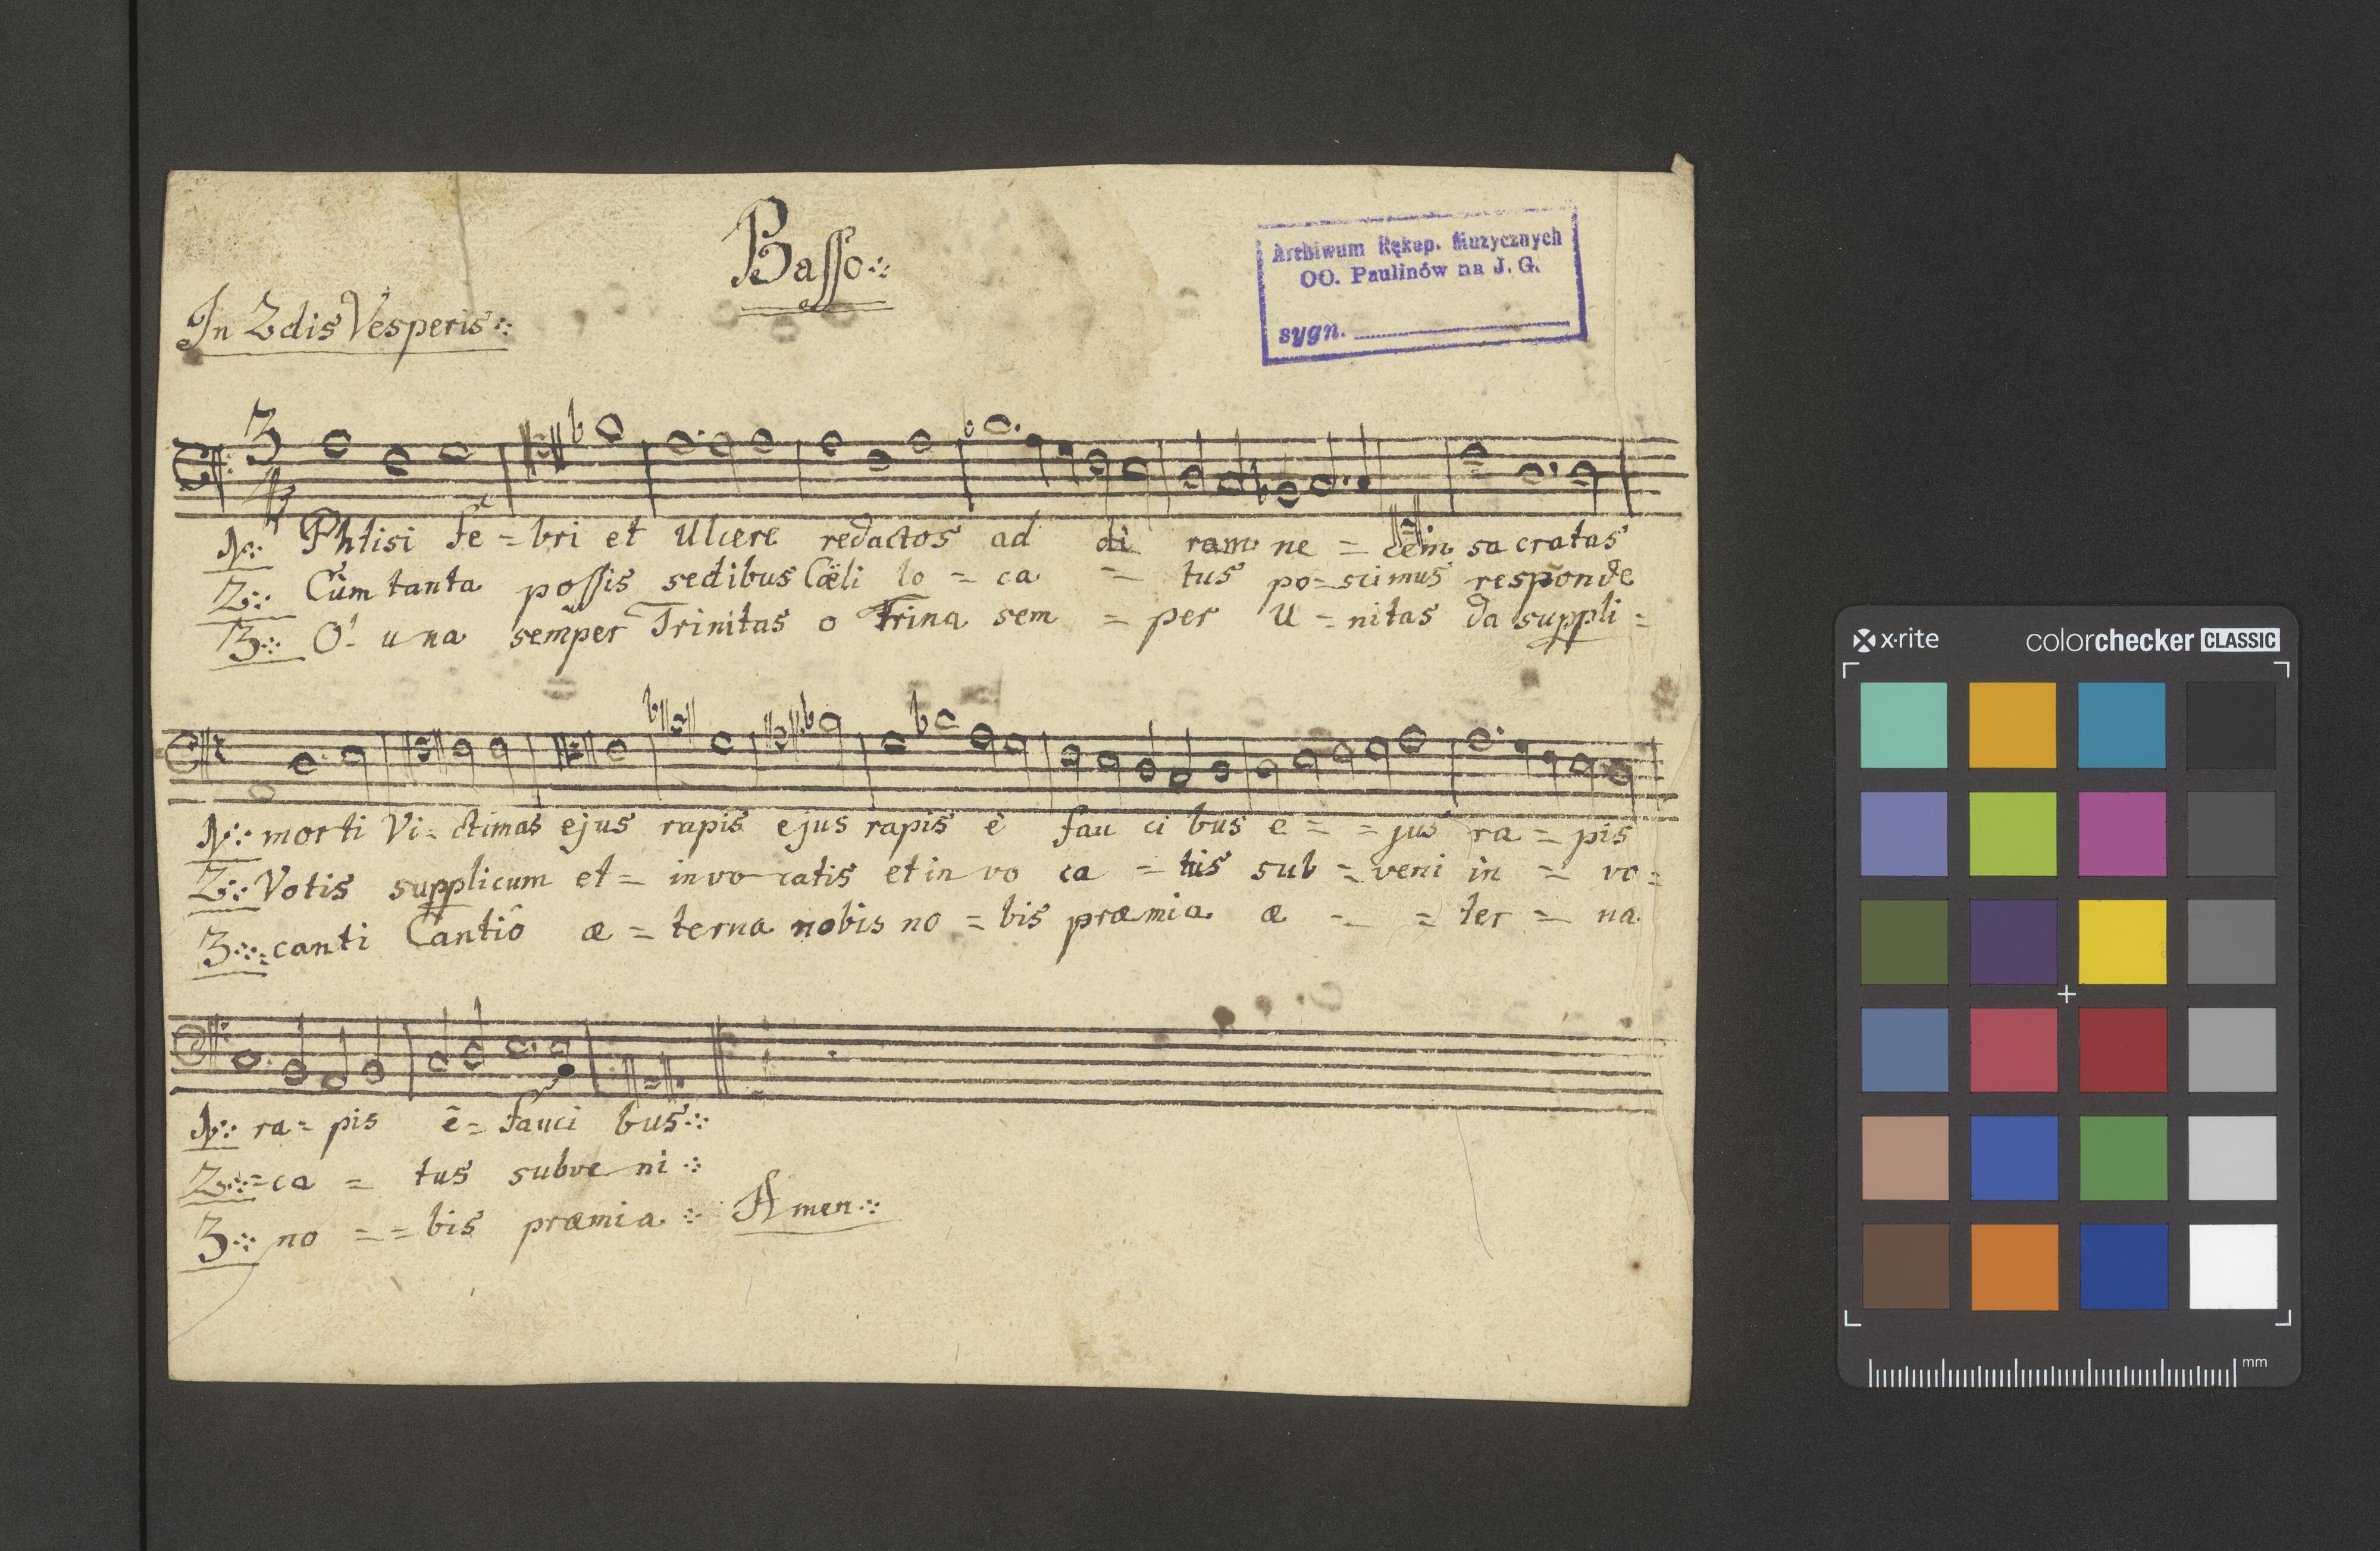 Basso
Archiwum Rękop. Muzycznych
OO. Paulinów na J. G.
sygn.
In 2dis Vesperis
3
4
1: Phtisi Fe = bri et Ulcere redactos ad di ram ne = cem sa cratas
2: Cùm tanta possis sedibus Cœli lo = ca = tus po = scimus responde
3: O! una semper Trinitas o Trina sem = per U = nitas da suppli =
1: morti Vi = ctimas ejus rapis ejus rapis è fau ci bus e = = jus ra = pis
2: Votis supplicum et = invo catis et in vo ca = tus sub = veni in = vo =
3: = canti Cantiô æ = terna nobis no = bis præmia æ = = ter = na
1: ra = pis ē = fauci bus
2: = ca = tus subve ni
3: no = = bis præmia Amen
x·rite
colorchecker CLASSIC
mm